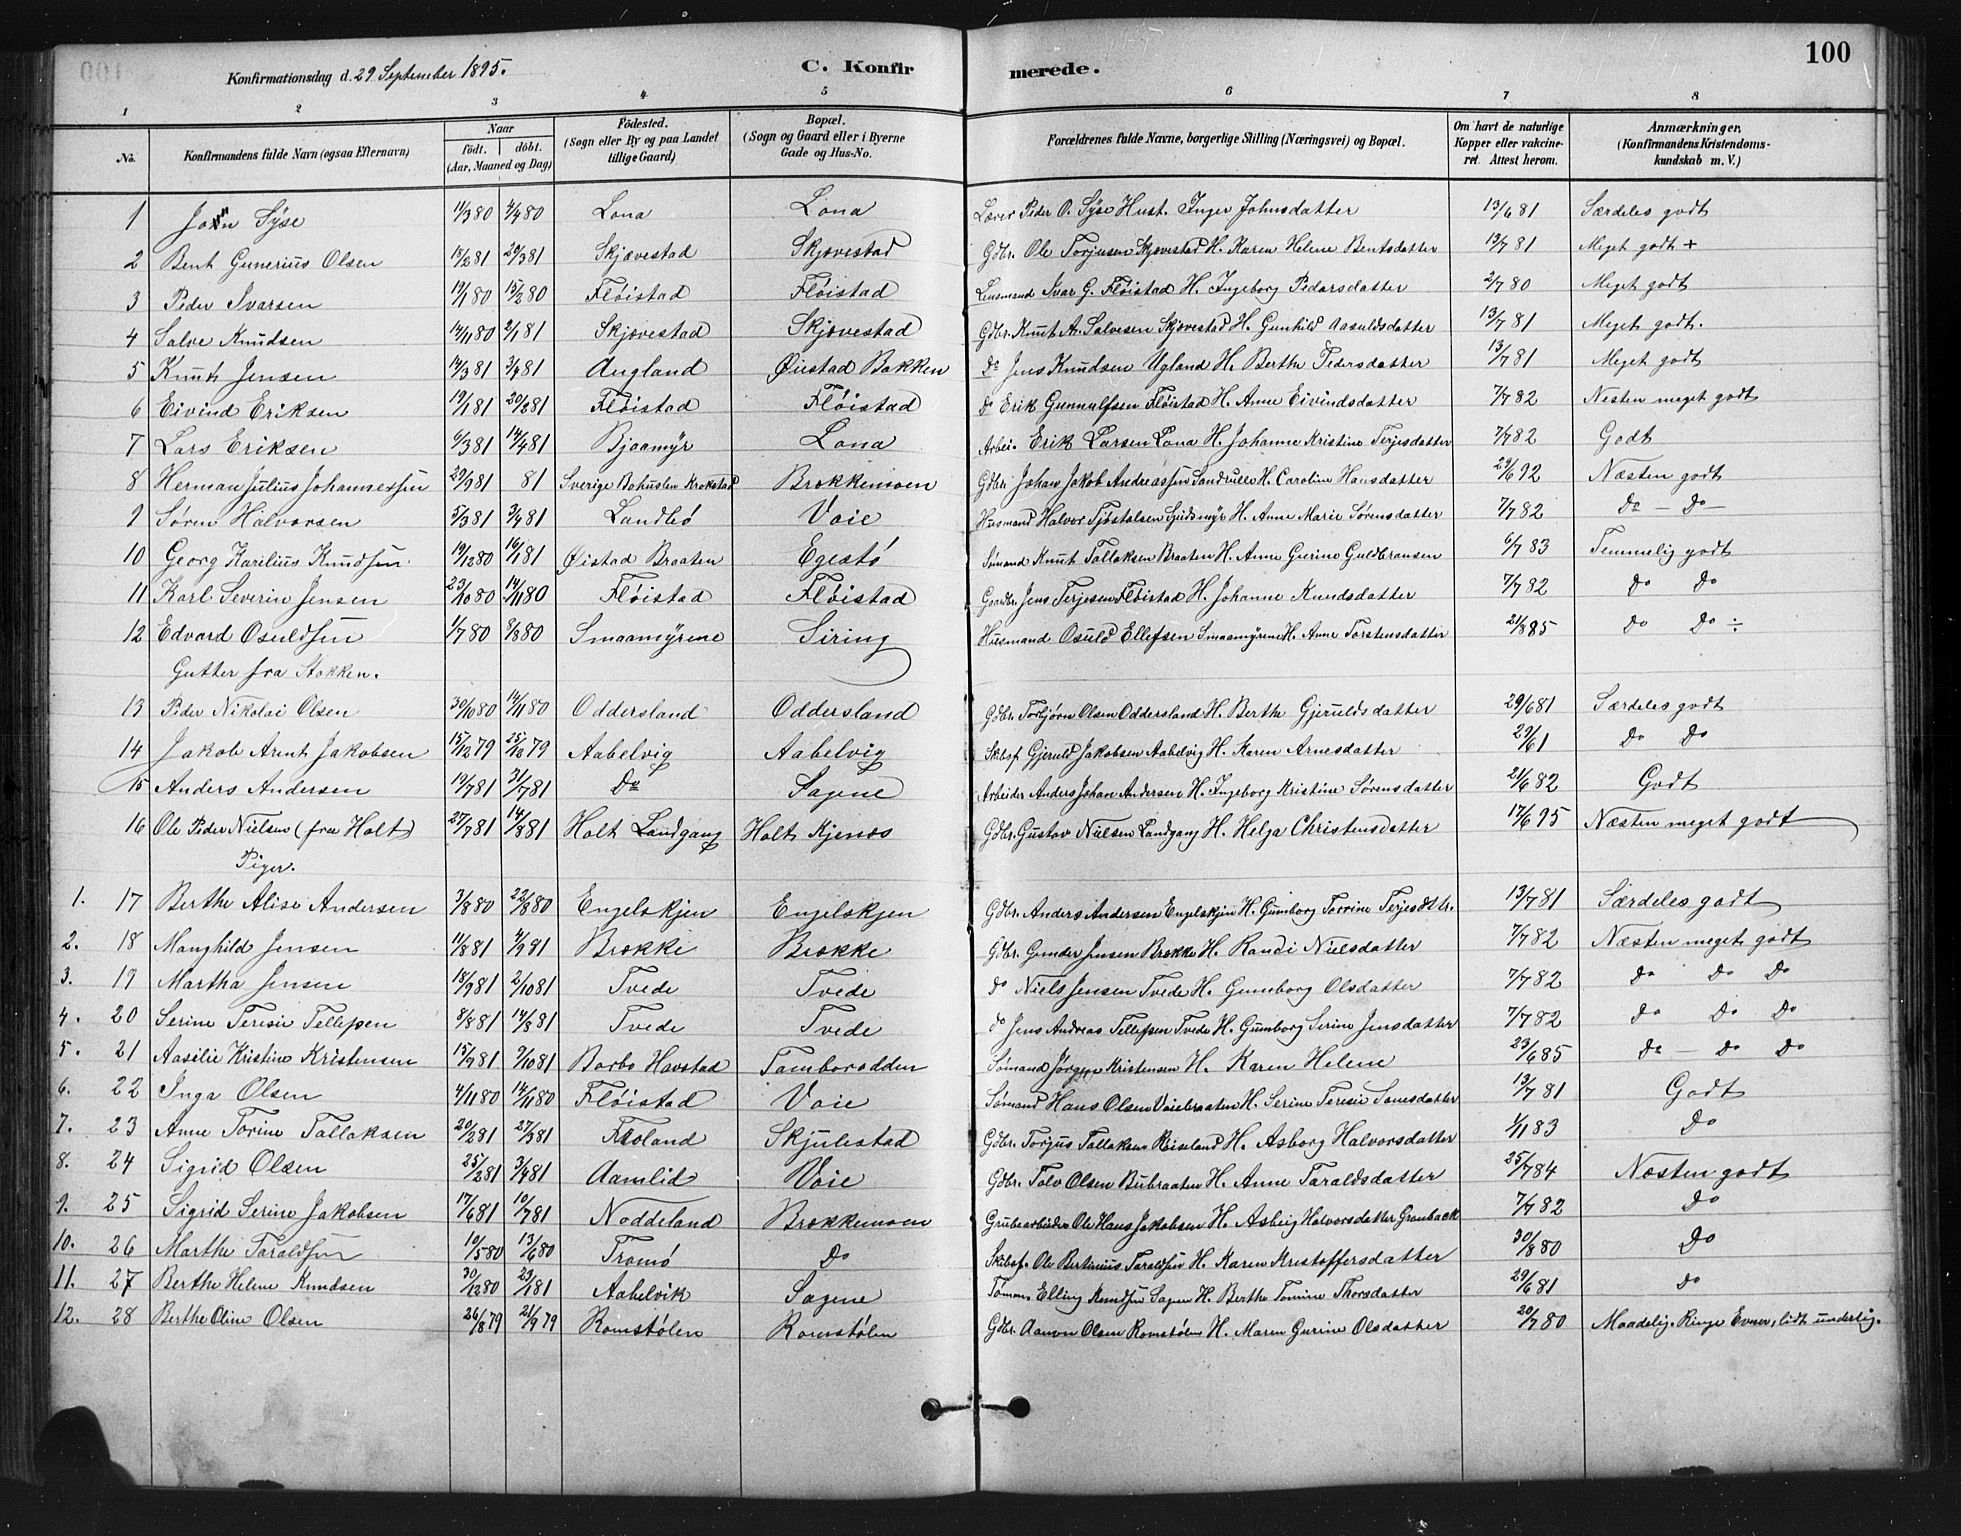 Konfirmationsdag d. 29 September 1895. C. Konfirmerede. 100
1 2 3 4 5 6 7 8
No. Konfirmandens fulde Navn (ogsaa Efternavn) Naar født. døbt. (Aar, Maaned og Dag) Födested. (Sogn eller By og paa Landet tillige Gaard) Bopæl. (Sogn og Gaard eller i Byerne Gade og Hus-No. Forældrenes fulde Navne, borgerlige Stilling (Næringsvei) og Bopæl. Om havt de naturlige Kopper eller vakcineret. Attest herom. Anmærkninger. (Konfirmandens Kristendomskundskab m. V.)
1 John Syse 11/3 80 4/4 80 Lona Lona Lærer Peder O. Syse Hust. Inger Johnsdatter 13/6 81 Særdeles godt
2 Bent Gunerius Olsen 18/2 81 29/3 81 Skjævestad Skjævestad Gdbr. Ole Torjusen Skjævestad H. Karen Helene Bentsdatter 13/7 81 Meget godt +
3 Peder Ivarsen 19/1 80 15/2 80 Fløistad Fløistad Lensmand Ivar G. Fløistad H. Ingeborg Pedersdatter 2/7 80 Meget godt
4 Salve Knudsen 14/11 80 2/1 81 Skjævestad Skjævestad Gdbr. Knut A. Salvesen Skjævestad H. Gunhild Aasuldsdatter 13/7 81 Meget godt.
5 Knut Jensen 14/3 81 3/4 81 Augland Øiestad Bakken Do Jens Knudsen Ugland H. Berthe Pedersdatter 13/7 81 Meget godt
6 Eivind Eriksen 19/1 81 20/2 81 Fløistad Fløistad Do Erik Gunnulfsen Fløistad H. Anne Eivindsdatter 7/7 82 Nesten meget godt
7 Lars Eriksen 6/3 81 14/4 81 Bjaamyr Lona Arbei. Erik Larsen Lona H. Johanne Kristine Terjesdatter 7/7 82 Godt
8 Herman Julius Johannessen 29/9 81 81 Sverige Bohuslen Krokstad Brekkemoen Gdbr. Johan Jakob Andreassen Sandrille H. Caroline Hansdatter 29/6 92 Næsten godt
9 Søren Halvorsen 5/3 81 3/4 81 Landbø Voie Husmand Halvor Tjøstolsen H. Anne Marie Sørensdatter 7/7 82 Do — Do —
10 Georg Karilius Knudsen. 19/12 80 16/1 81 Øistad Braaten Egestø Sømand Knut Tallaksen Braaten H. Anne Gurine Guldbransen 6/7 83 Temmelig godt
11 Karl Severin Jensen 23/10 80 14/11 80 Fløistad Fløistad Gaardbr. Jens Terjesen Fløistad H. Johanne Knudsdatter 7/7 82 Do Do
12 Edvard Osuldsen 1/7 80 8/8 80 Smaamyrene Siring Husmand Osuld Ellefsen Smaamyrene H. Anne Torstensdatter 21/8 85 Do Do ÷
Gutter fra Stokken.
13 Peder Nikolai Olsen 30/10 80 14/11 80 Oddersland Oddersland Gdbr. Torbjørn Olsen Oddersland H. Berthe Gjeruldsdatter 29/6 81 Særdeles godt
14 Jakob Arent Jakobsen 15/12 79 25/12 79 Aabelvig Aabelvig Skibsf. Gjeruld Jakobsen Aabelvig H. Karen Arnesdatter 29/6 1 Do Do
15 Anders Andersen 19/7 81 31/7 81 Do Sagene Arbeider Anders Johan Andersen H. Ingeborg Kristine Sørensdatter 21/6 82 Godt
16 Ole Peder Nielsen (fra Holt) 27/7 81 14/8 81 Holt Landgang Holt Kjenæs Gdbr. Gustav Nielsen Landgang H. Helga Christensdatter 17/6 95 Næsten meget godt
Piger.
1. 17 Berthe Alise Andersen 3/8 80 22/8 80 Engelskjen Engelskjen Gdbr. Anders Andersen Engelskjen H. Gumborg Torrine Terjesdttr. 13/7 81 Særdeles godt
2. 18 Manghild Jensen 11/8 81 4/9 81 Brekke Brekke Gdbr. Gunder Jensen Brekke H. Randi Nielsdatter 7/7 82 Næsten meget godt
3. 19 Martha Jensen 18/9 81 2/10 81 Tvede Tvede Do Niels Jensen Tvede H. Gunborg Olsdatter 7/7 82 Do Do Do
4. 20 Serine Teresie Tellefsen 8/8 81 14/8 81 Tvede Tvede Do Jens Andreas Tellefsen Tvede H. Gumborg Serine Jensdatter 7/7 82 Do Do Do
5. 21 Aasilie Kristine Kristensen 15/9 81 9/10 81 Barbo Havstad Tamborodden Sømand Jørgen Kristensen H. Karen Helene 23/6 85 Do — Do Do
6. 22 Inga Olsen 4/11 80 14/11 80 Fløistad Voie Sømand Hans Olsen Voiebraaten H. Serine Teresie Tonesdatter 13/7 81 Godt
7. 23 Anne Torine Tallaksen 20/2 81 27/3 81 Froland Skjulestad Gdbr. Torjus Tallaksen Reiseland H. Asborg Halvorsdatter 1/11 83 Do
8. 24 Sigrid Olsen 25/2 81 3/4 81 Aamlid Voie Gdbr. Tolv Olsen Bubraaten H. Anne Taraldsdatter 25/7 84 Næsten godt
9. 25 Sigrid Serine Jakobsen 17/6 81 10/7 81 Noddeland Brekkemoen Grubearbeider Ole Hans Jakobsen H. Asbeig Halvorsdatter Granback 7/7 82 Do
10. 26 Marthe Taraldsen 10/5 80 13/6 80 Tromø Do Skibsf. Ole Bertinius Taraldsen H. Karen Kristoffersdatter 30/8 80 Do
11. 27 Berthe Helene Knudsen 30/12 80 23/1 81 Aabelvik Sagene Tømm. Elling Knudsen Sagen H. Berthe Tomine Thorsdatter 29/6 81 Do
12. 28 Berthe Oline Olsen 26/8 79 21/9 79 Romstølen Romstølen Gdbr. Aanon Olsen Romstølen H. Maren Gurine Olsdatter 20/7 80 Maadelig. Ringe Evner, lidt underlig.